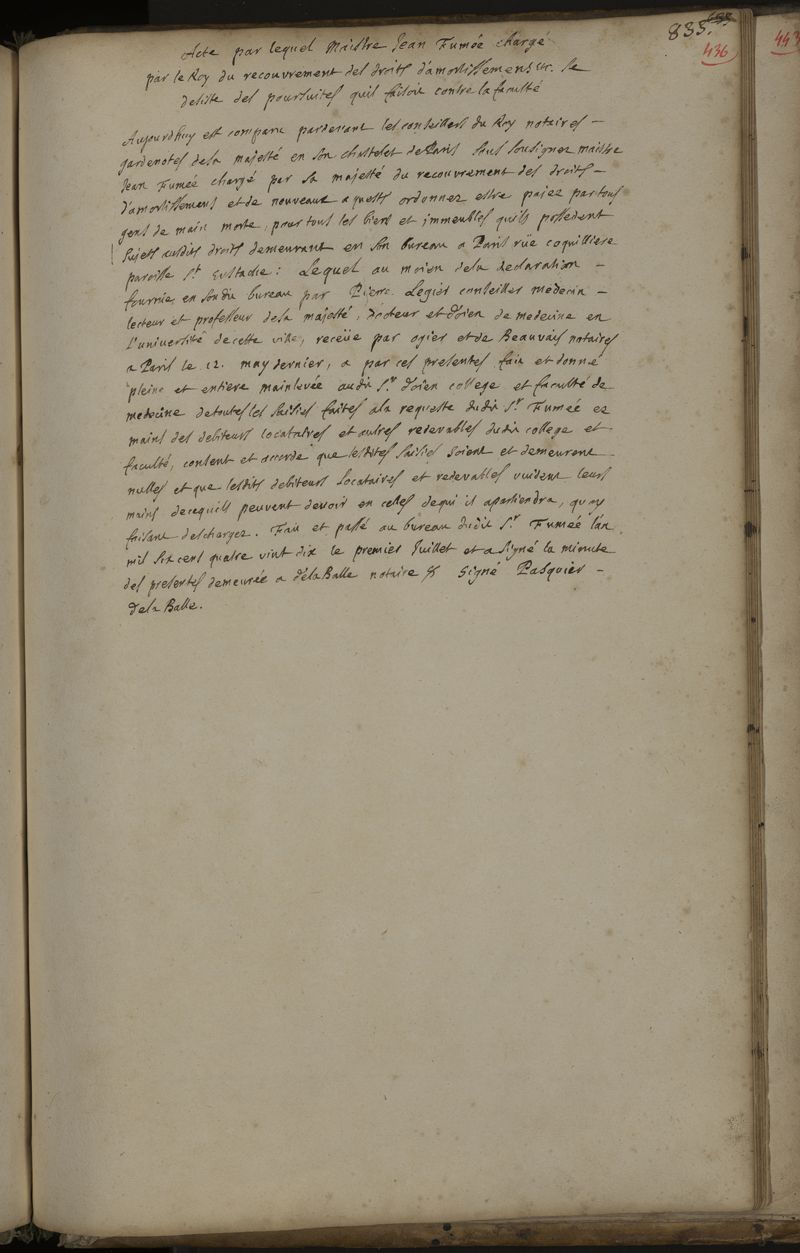 835.
436
443
Acte par lequel Maistre Jean Fumée chargé
par le Roy du recouvrement des droits d'amortissement etc. se
desiste des poursuites quil faisoit contre la faculté
Aujourdhuy est comparu pardevant les conseillers du Roy notaires –
gardenotes de sa majesté en son chastelet de Paris sous signez maistre
Jean Fumée chargé par sa majesté du recouvrement des droits –
d'amortissement et de nouveaux aquests ordonnez estre paiez par tous
gens de main morte, pour tous les biens et immeubles quils possedent
sujets ausdits droits demeurant en son bureau a Paris rüe coquilliere
paroisse St. Eustache: Lequel au moien dela declaration –
fournie en sondit bureau par Pierre Legier conseiller medecin –
lecteur et professeur de sa majesté, docteur et doien de medecine en
l'université de cette ville, receüe par ogier et de Beauvais notaires
a Paris le 12. may dernier, a par ces presentes fait et donné
pleine et entiere mainlevée audit Sr. doien college et faculté de
medecine de toutes les saisies faites ala requeste dudit Sr. Fumée ez
mains des debiteurs locataires et autres redevables dudit college et
faculté, consent et accorde que lesdites saisies soient et demeurent
nulles et que lesdits debiteurs locataires et redevables vuident leurs
mains de cequils peuvent devoir en celles de qui il apartiendra, quoy
faisant deschargez. Fait et passé au bureau dudit Sr. Fumée l'an
mil six cent quatre vint dix le premier Juillet et a signé la minute
des presentes demeurée a dela Balle notaire & signé Pasquier –
dela Balle.